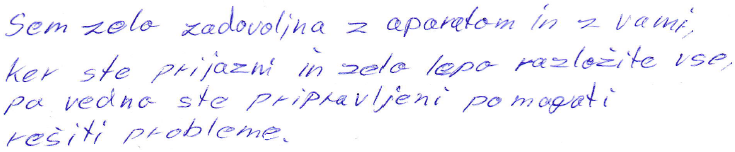 Sem zelo zadovoljna z aparatom in z vami,
ker ste prijazni in zelo lepo razložite vse,
pa vedno ste pripravljeni pomagati
rešiti probleme.